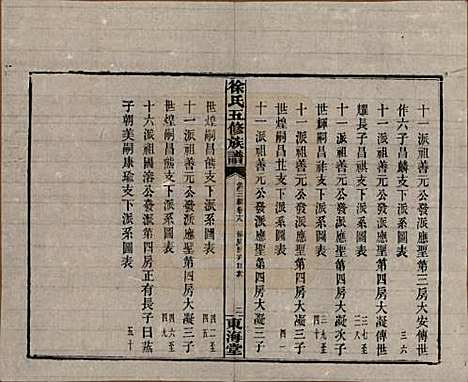 十一派祖善元公發派應聖第三房大安傳世
作六子昌麟支下派系圖表 三六
十一派祖善元公發派應聖第四房大凝傳世
耀長子昌祺支下派系圖表 三八
十一派祖善元公發派應聖第四房大凝次子
世輝嗣子昌祚支下派系圖表 三九至四十
十一派祖善元公發派應聖第四房大凝三子
世煌嗣昌世支下派系圖表 四一
徐氏五修族譜
東海堂
十一派祖善元公發派應聖第四房大凝三子
世煌嗣昌能支下派系圖表 四二至四五
十一派祖善元公發派應聖第四房大凝三子
世煌嗣昌熊支下派系圖表 四六至四九
十六派祖國溶公發派第四房正有長子日蒸
子朝美嗣康瑜支下派系圖表 五十